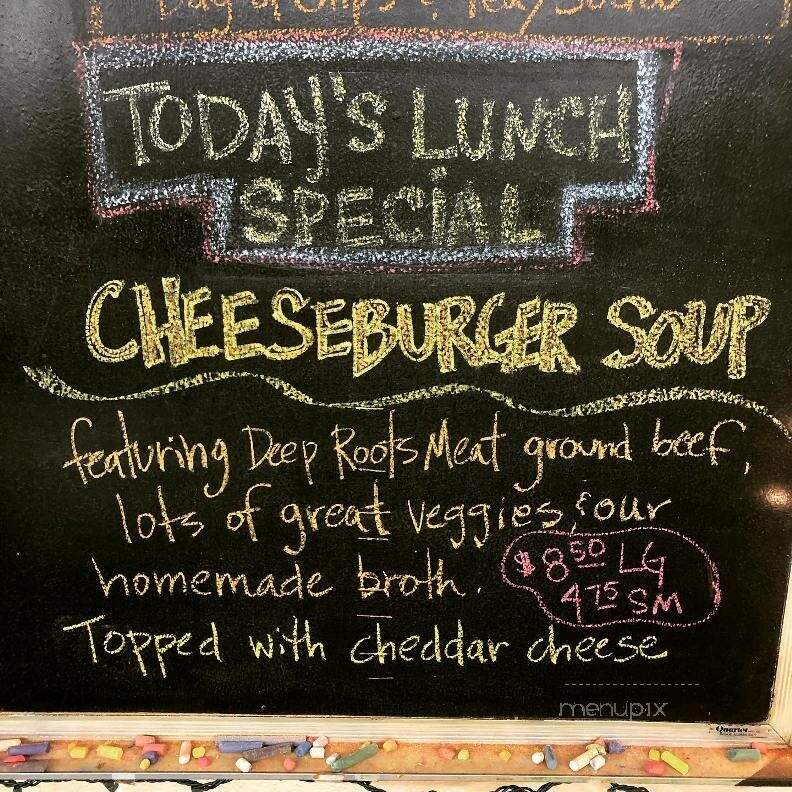 Bag of Chips &
TODAY'S LUNCH
SPECIAL
CHEESEBURGER SOUP
featuring Deep Roots Meat ground beef,
lots of great veggies, & our
homemade broth.
$8.50 LG
4.75 SM
Topped with cheddar cheese
menupix
Quartet